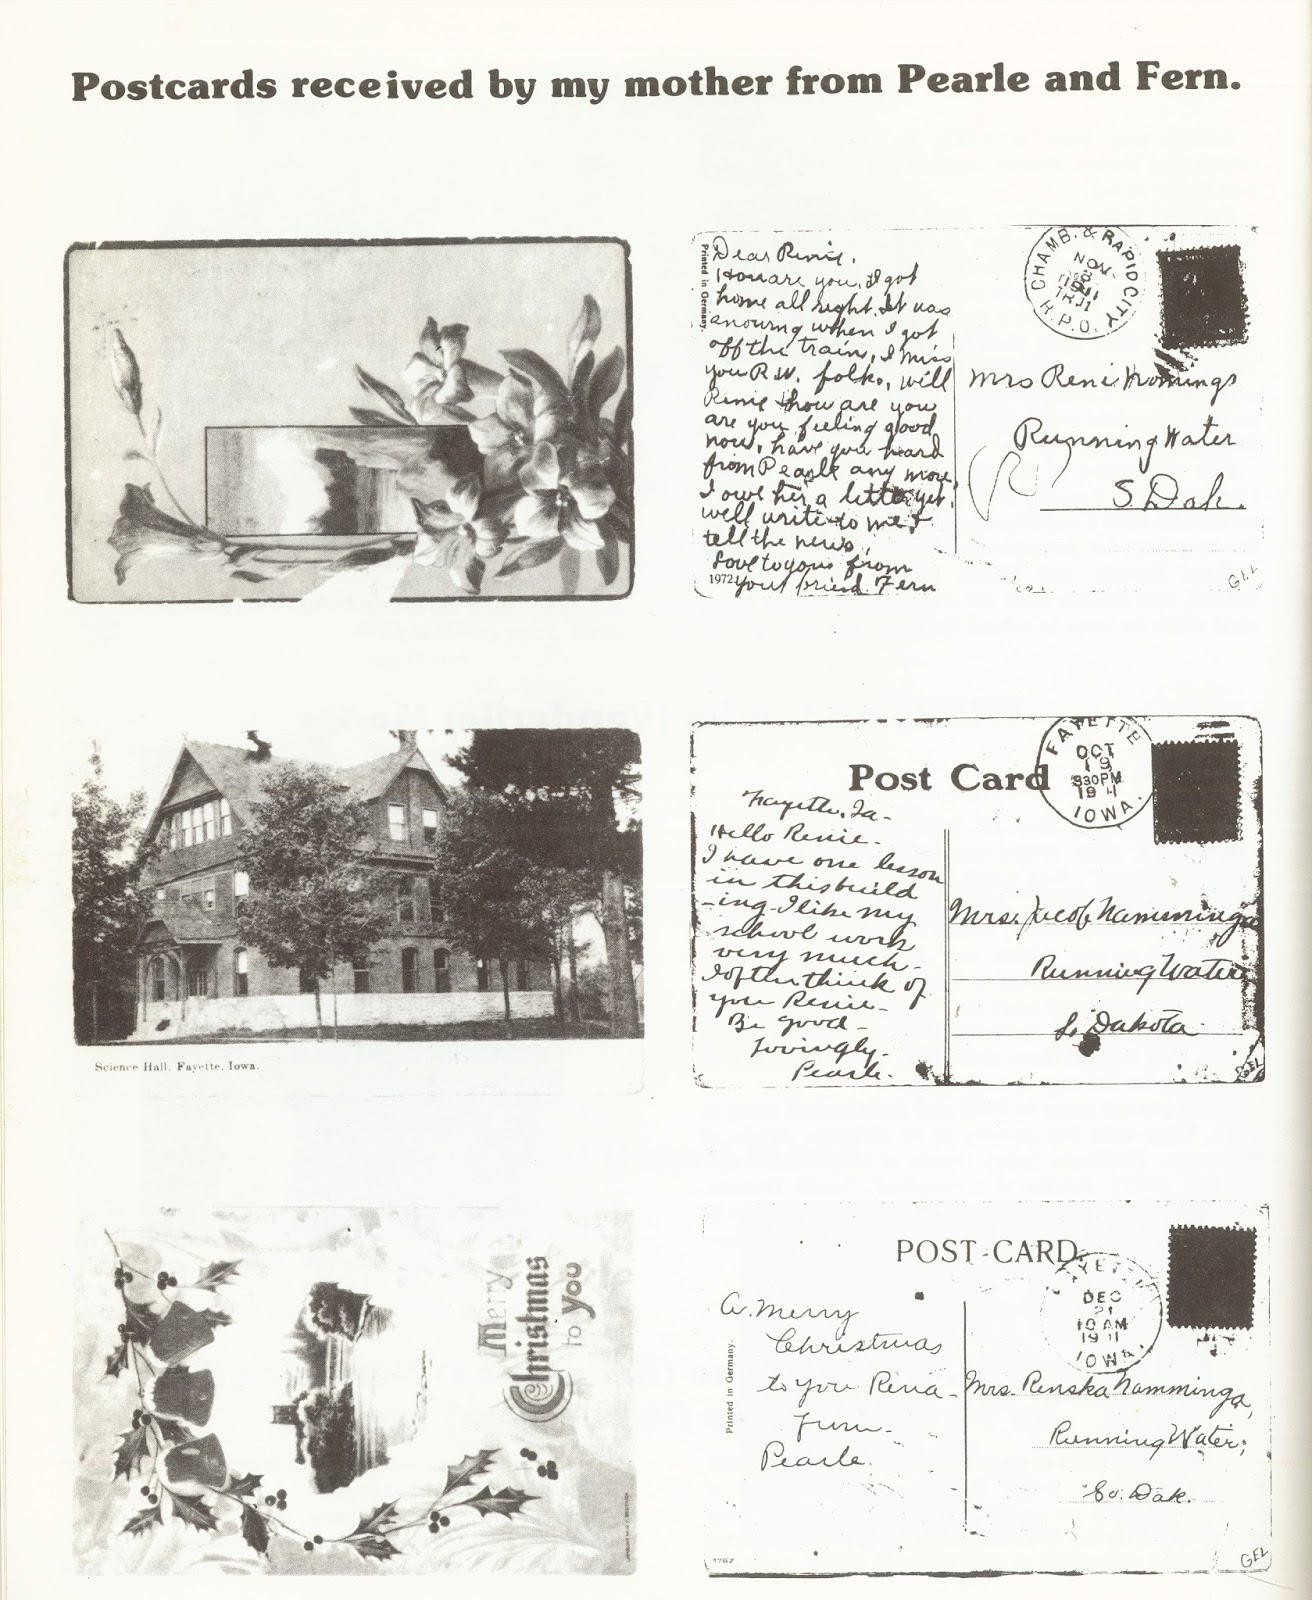 Postcards received by my mother from Pearle and Fern.
Printed in Germany.
Dear Renie,
How are you, I got
home all right. It was
snowing when I got
off the train, I miss
you R.W. folks, will
Renie how are you
are you feeling good
now, have you heard
from Pearle any more,
I owe her a letter yet.
well write to me &
tell the news,
Love to you from
your friend Fern
1972
CHAMB. & RAPID CITY
NOV
1911
TR.1
R.P.O.
Mrs Reni
Running Water
S. Dak.
GEL
Science Hall, Fayette, Iowa.
Post Card
Fayette, Ia-
Hello Renie-
I have one lesson
in this build
-ing- I like my
school work
very much-
I often think of
you Renie-
Be good-
Lovingly-
Pearle-
FAYETTE
OCT
19
830PM
1911
IOWA.
Mrs. Jacob Namminga
Running Water
So. Dakota
GEL
Merry
Christmas
to you
POST CARD.
Printed in Germany.
A. Merry
Christmas
to you Rena-
From-
Pearle.
FAYETTE
DEC
21
10 AM
1911
IOWA.
Mrs. Renska Namminga,
Running Water,
So. Dak.
1762
GEL